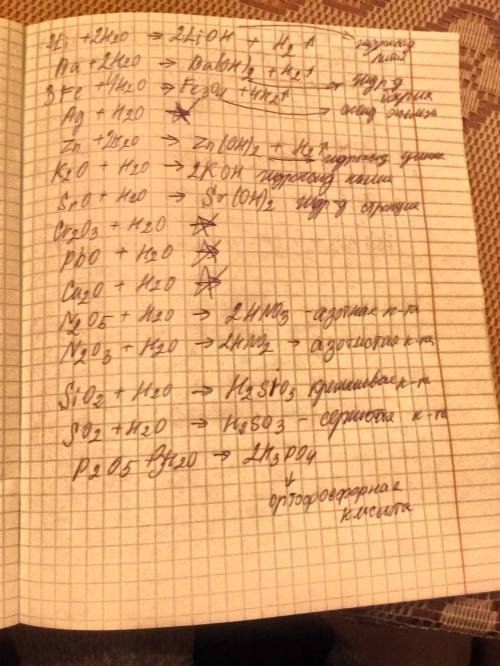 2Li + 2H2O → 2LiOH + H2↑ гидроксид лития
Ba + 2H2O → Ba(OH)2 + H2↑ гидр-д бария
3Fe + 4H2O → Fe3O4 + 4H2↑ оксид железа
Ag + H2O ↛
Zn + 2H2O → Zn(OH)2 + H2↑ гидроксид цинка
K2O + H2O → 2KOH гидроксид калия
SrO + H2O → Sr(OH)2 гидр-д стронция
Cr2O3 + H2O ↛
PbO + H2O ↛
Cu2O + H2O ↛
N2O5 + H2O → 2HNO3 - азотная к-та
N2O3 + H2O → 2HNO2 → азотистая к-та
SiO2 + H2O → H2SiO3 кремниевая к-та
SO2 + H2O → H2SO3 - сернистая к-та
P2O5 + 3H2O → 2H3PO4
↓
ортофосфорная
кислота